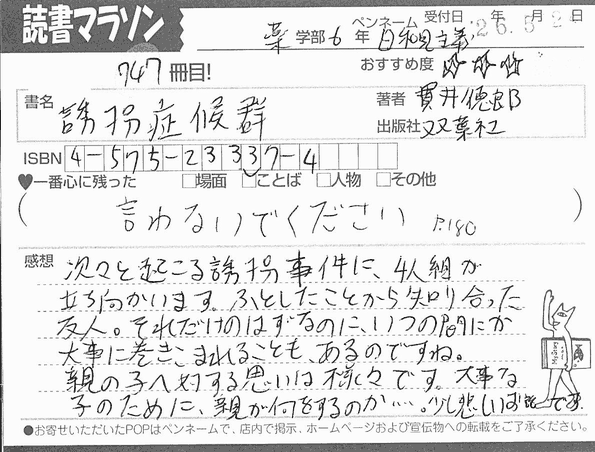 読書マラソン
薬 学部 6 年 ペンネーム 日和見主義 受付日 '26.5.2 年 月 日
747冊目! おすすめ度 ☆☆☆
書名 誘拐症候群 著者 貫井徳郎
出版社 双葉社
ISBN 4-575-23337-4
♥一番心に残った □場面 □ことば □人物 □その他
(言わないでください P.180)
感想 次々と起こる誘拐事件に、4人組が
立ち向かいます。ふとしたことから知り合った
友人。それだけのはずなのに、いつの間にか
大事に巻きこまれることも、あるのですね。
親の子へ対する思いは様々です。大事な
子のために、親が何をするのか…。少し悲しいお話です
●お寄せいただいたPOPはペンネームで、店内で掲示、ホームページおよび宣伝物への転載をご了承ください。